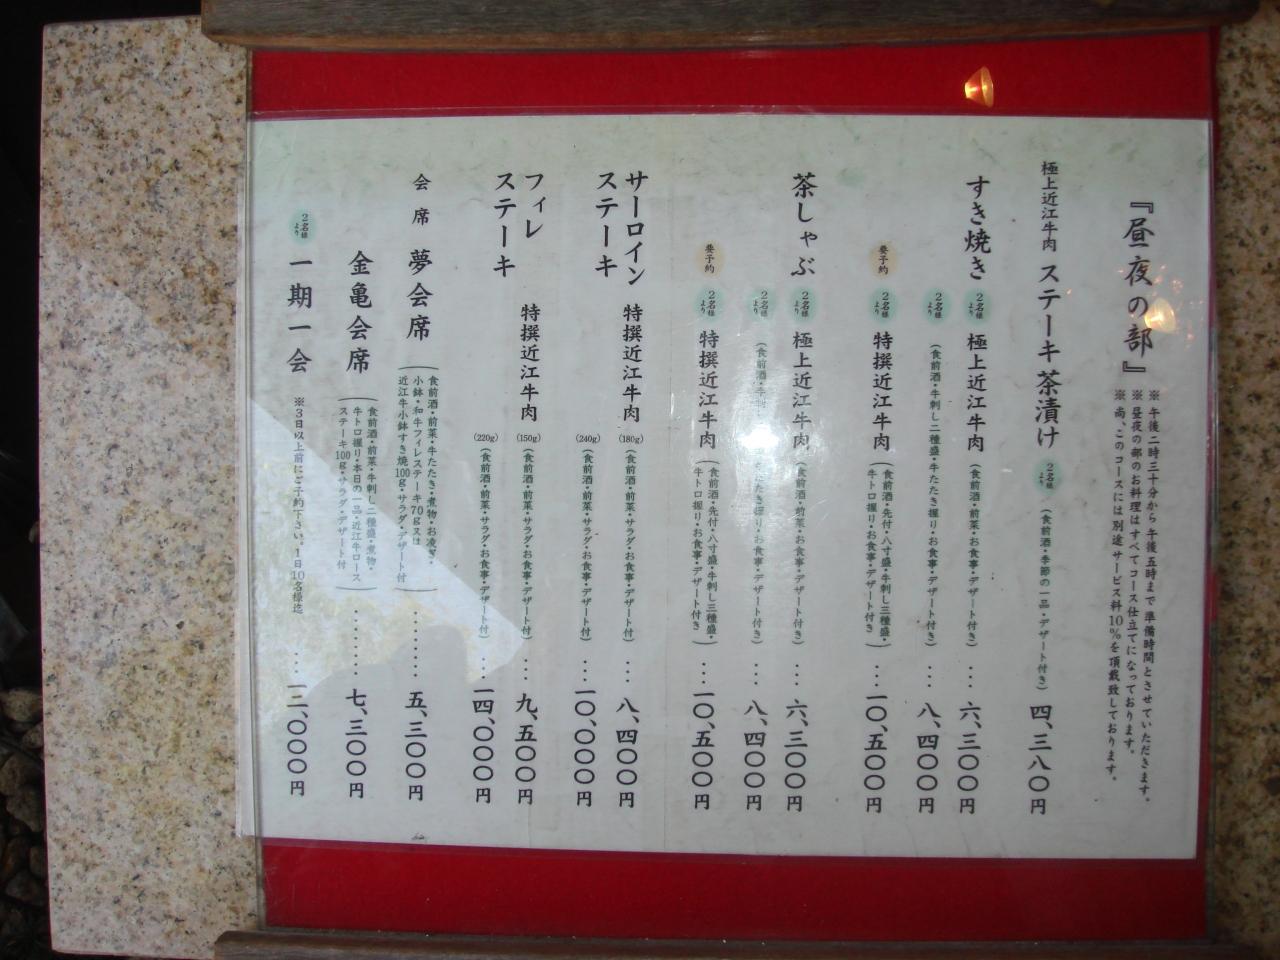 『昼夜の部』
※午後二時三十分から午後五時まで準備時間とさせていただきます。
※昼夜の部のお料理はすべてコース仕立てになっております。
※尚、このコースには別途サービス料10%を頂戴致しております。
極上近江牛肉 ステーキ茶漬け 2名様より (食前酒・季節の一品・デザート付き) 四、三八〇円
すき焼き 2名様より 極上近江牛肉 (食前酒・前菜・お食事・デザート付き) … 六、三〇〇円
2名様より (食前酒・牛刺し二種盛・牛たたき握り・お食事・デザート付き) … 八、四〇〇円
要予約 2名様より 特撰近江牛肉 (食前酒・先付・八寸盛・牛刺し三種盛・
牛トロ握り・お食事・デザート付き) … 一〇、五〇〇円
茶しゃぶ 2名様より 極上近江牛肉 (食前酒・前菜・お食事・デザート付き) … 六、三〇〇円
2名様より (食前酒・牛刺 たたき握り・お食事・デザート付き) … 八、四〇〇円
要予約 2名様より 特撰近江牛肉 (食前酒・先付・八寸盛・牛刺し三種盛・
牛トロ握り・お食事・デザート付き) … 一〇、五〇〇円
サーロイン
ステーキ
特撰近江牛肉 (180g) (食前酒・前菜・サラダ・お食事・デザート付) … 八、四〇〇円
(240g) (食前酒・前菜・サラダ・お食事・デザート付) … 一〇、〇〇〇円
フィレ
ステーキ
特撰近江牛肉 (150g) (食前酒・前菜・サラダ・お食事・デザート付) … 九、五〇〇円
(220g) (食前酒・前菜・サラダ・お食事・デザート付) … 一四、〇〇〇円
会席 夢会席 (食前酒・前菜・牛たたき・煮物・お凌ぎ・
小鉢・和牛フィレステーキ70g又は
近江牛小鉢すき焼100g・サラダ・デザート付) ……… 五、三〇〇円
金亀会席 (食前酒・前菜・牛刺し二種盛・煮物・
牛トロ握り・本日の一品・近江牛ロース
ステーキ100g・サラダ・デザート付) ……… 七、三〇〇円
2名様より 一期一会 ※3日以上前にご予約下さい。1日10名様迄 …… 一二、〇〇〇円